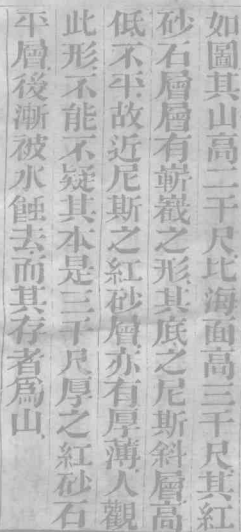 如圖其山高二千尺比海面高三千尺其紅
砂石層層有嶄巀之形其底之尼斯斜層高
低不平故近尼斯之紅砂層亦有厚薄人觀
此形不能不疑其本是三千尺厚之紅砂石
平層後漸被水蝕去而其存者爲山